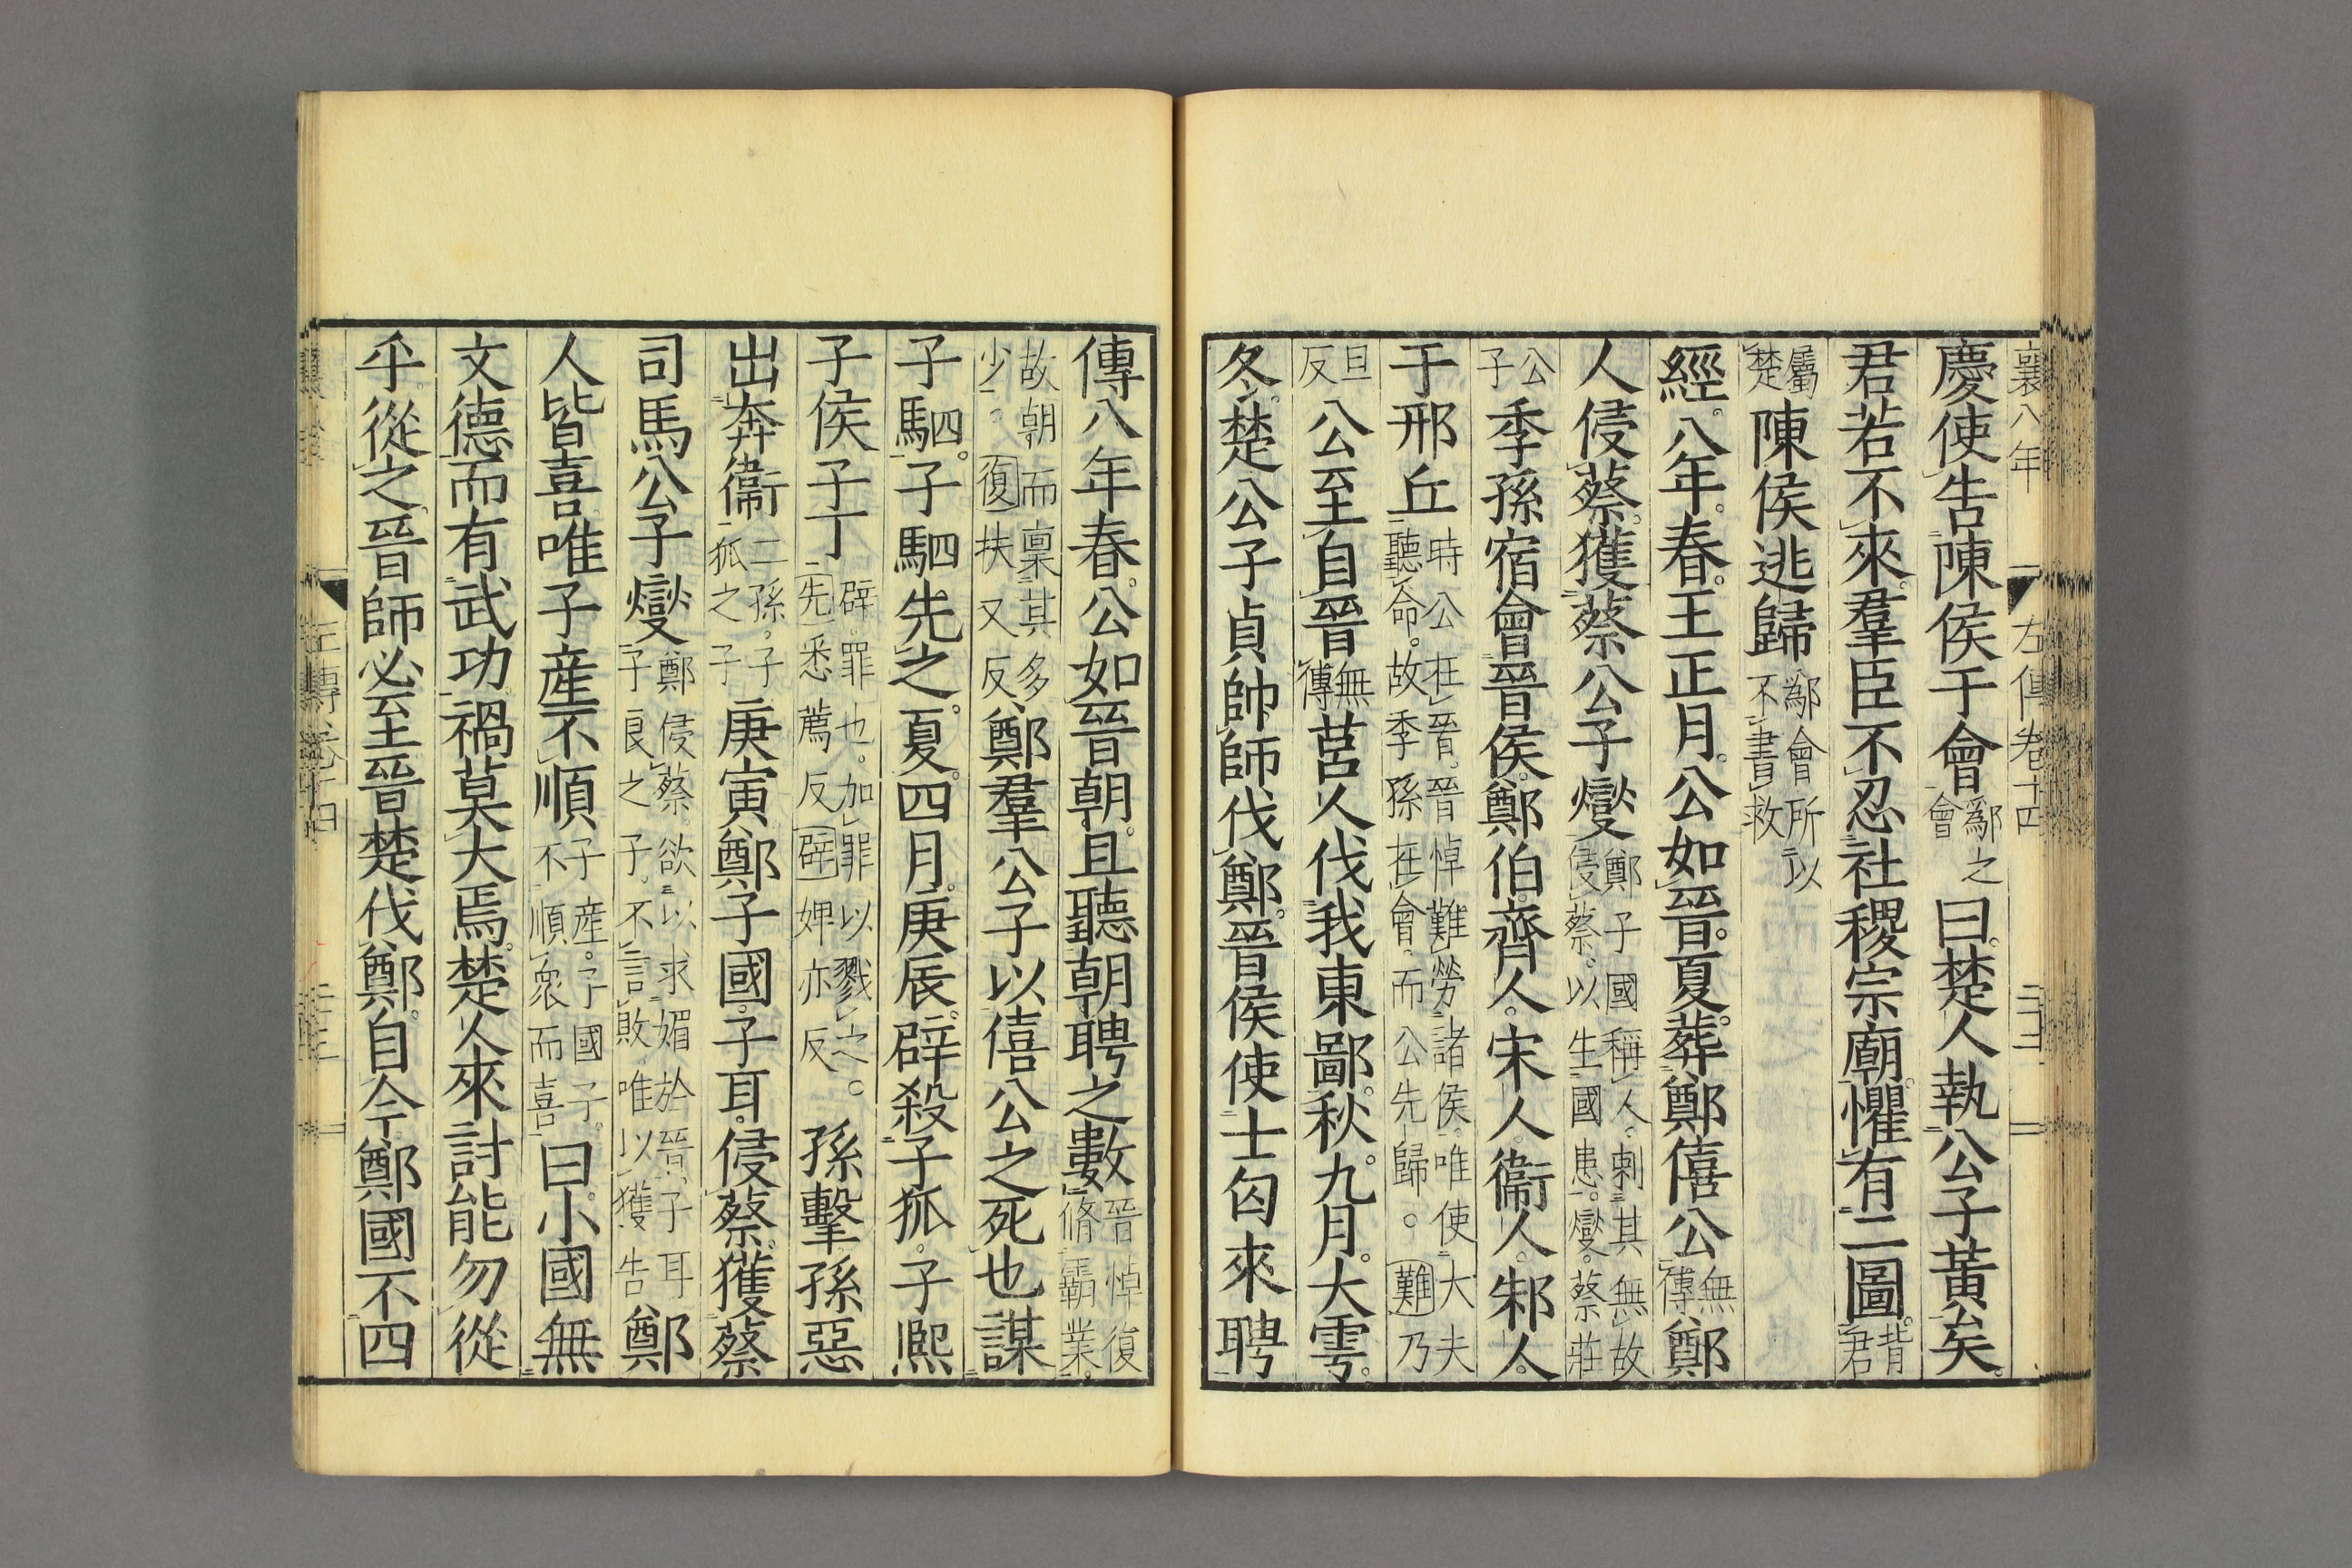 襄八年 左傳卷十四
慶使告陳侯于會鄬之會曰楚人執公子黃矣
君若不來羣臣不忍社稷宗廟懼有二圖背君
屬楚陳侯逃歸鄬會所以不書救
經八年春王正月公如晉夏葬鄭僖公無傳鄭
人侵蔡獲蔡公子燮鄭子國稱人刺其無故侵蔡以生國患燮蔡莊
公子季孫宿會晉侯鄭伯齊人宋人衞人邾人
于邢丘時公在晉晉悼難勞諸侯唯使大夫聽命故季孫在會而公先歸。難乃
旦反公至自晉無傳莒人伐我東鄙秋九月大雩
冬楚公子貞帥師伐鄭晉侯使士匄來聘
傳八年春公如晉朝且聽朝聘之數晉悼復脩霸業
故朝而稟其多少。復扶又反鄭羣公子以僖公之死也謀
子駟子駟先之夏四月庚辰辟殺子狐子熈
子侯子丁辟罪也加罪以戮之。先悉薦反辟婢亦反孫擊孫惡
出奔衞二孫子狐之子庚寅鄭子國子耳侵蔡獲蔡
司馬公子燮鄭侵蔡欲以求媚於晉子耳子良之子不言敗唯以獲告鄭
人皆喜唯子產不順子產子國子不順衆而喜曰小國無
文德而有武功禍莫大焉楚人來討能勿從
乎從之晉師必至晉楚伐鄭自今鄭國不四